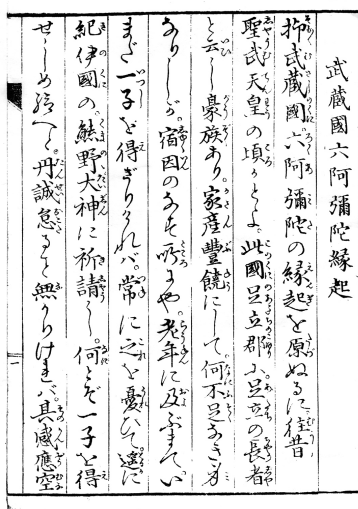 武蔵國六阿彌陀縁起
抑武蔵國六阿彌陀の縁起を原ぬるに往昔
聖武天皇の頃かとよ此國足立郡に足立の長者
と云し豪族あり家産豊饒にして何不足なき身
なりしが宿因のなす所にや老年に及ぶまでい
まだ一子を得ざりければ常に之を憂ひて遙に
紀伊國の熊野大神に祈請し何とぞ一子を得
せしめ給へと丹誠怠ること無かりければ其感應空
一